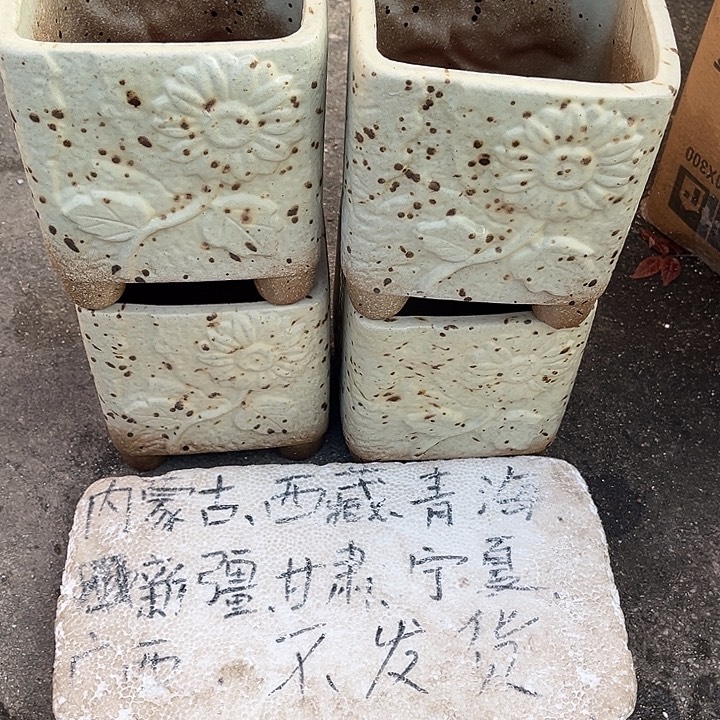 内蒙古、西藏、青海、
新疆、甘肃、宁夏、
广西、不发货
0X300